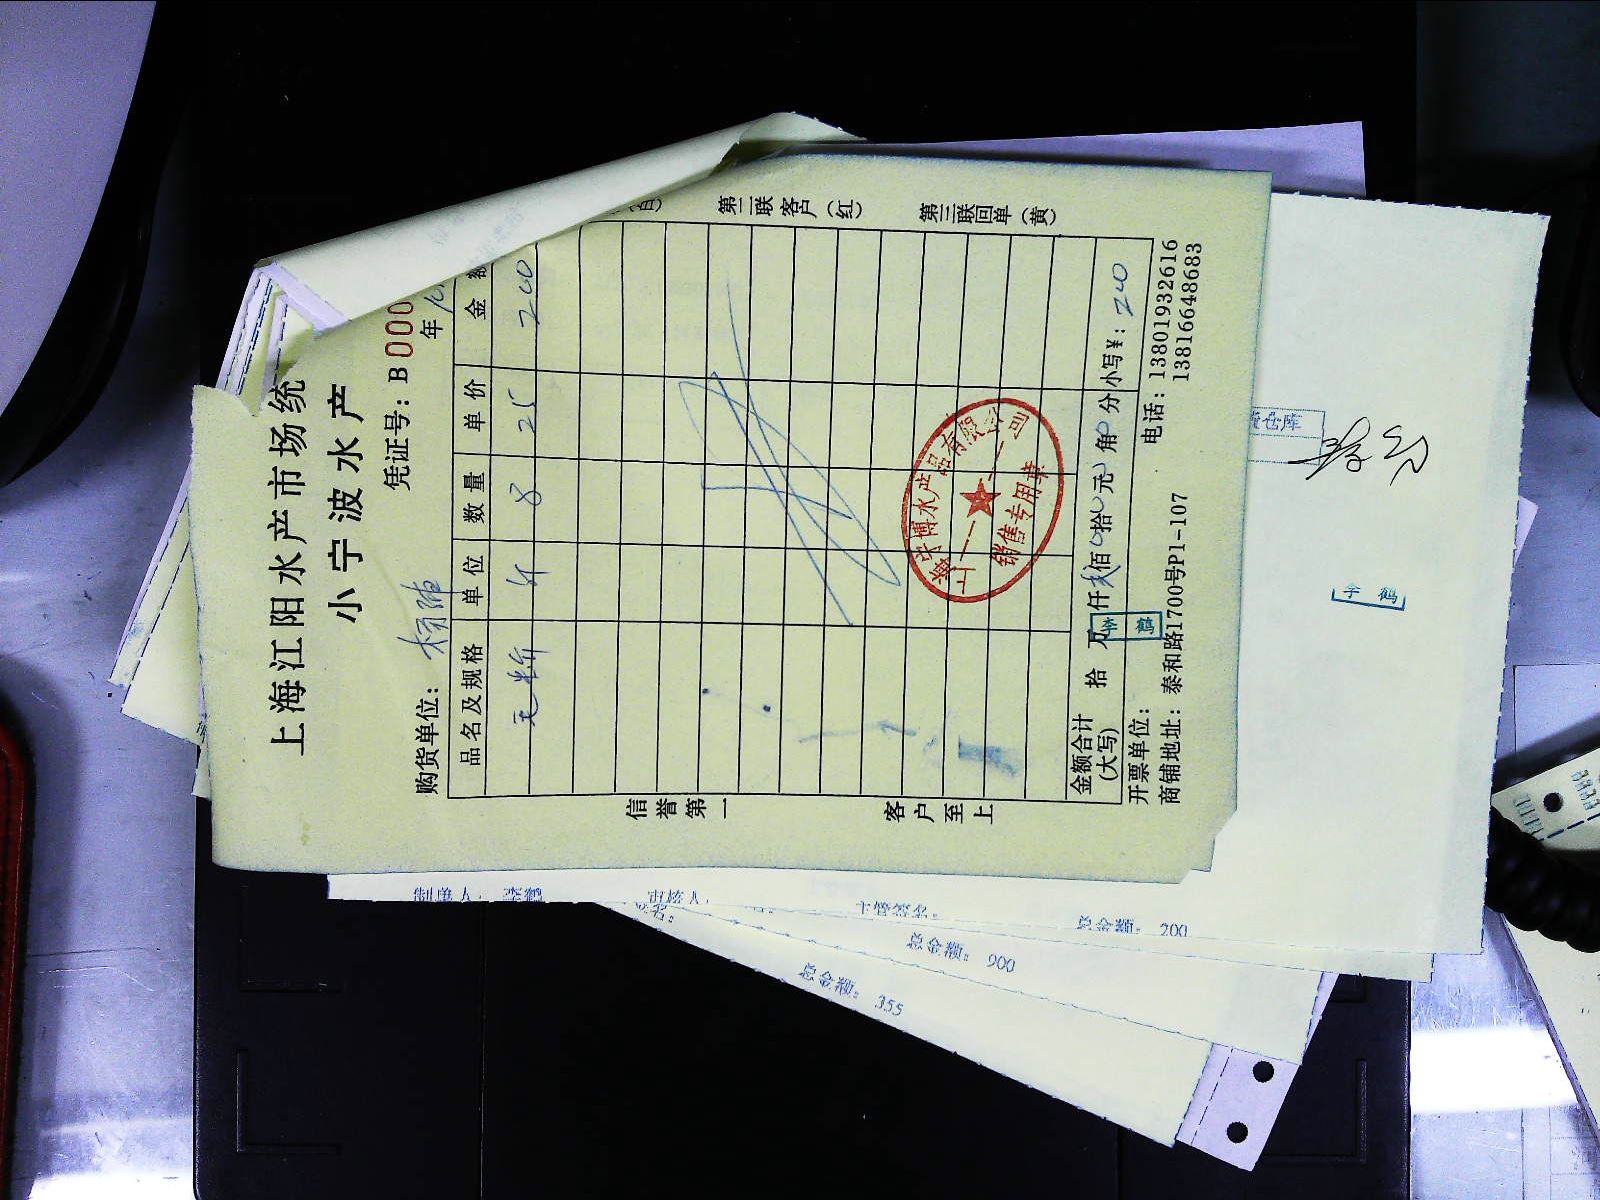 上海江阳水产市场统
小宁波水产
凭证号：B000
年
购货单位：
品名及规格 单位 数量 单价 金额
斤 8 25 200
金额合计
(大写)
拾 万 仟 佰 拾 元 角 分 小写¥：200
开票单位：
电话：13801932616
13816648683
商铺地址：泰和路1700号P1-107
信誉第一
客户至上
第二联客户（红）
第三联回单（黄）
水产品有限公司
销售专用章
李鹤
仓库
李鹤
制单人：李鹤
审核人：
主管签名：
总金额：200
总金额：900
总金额：355